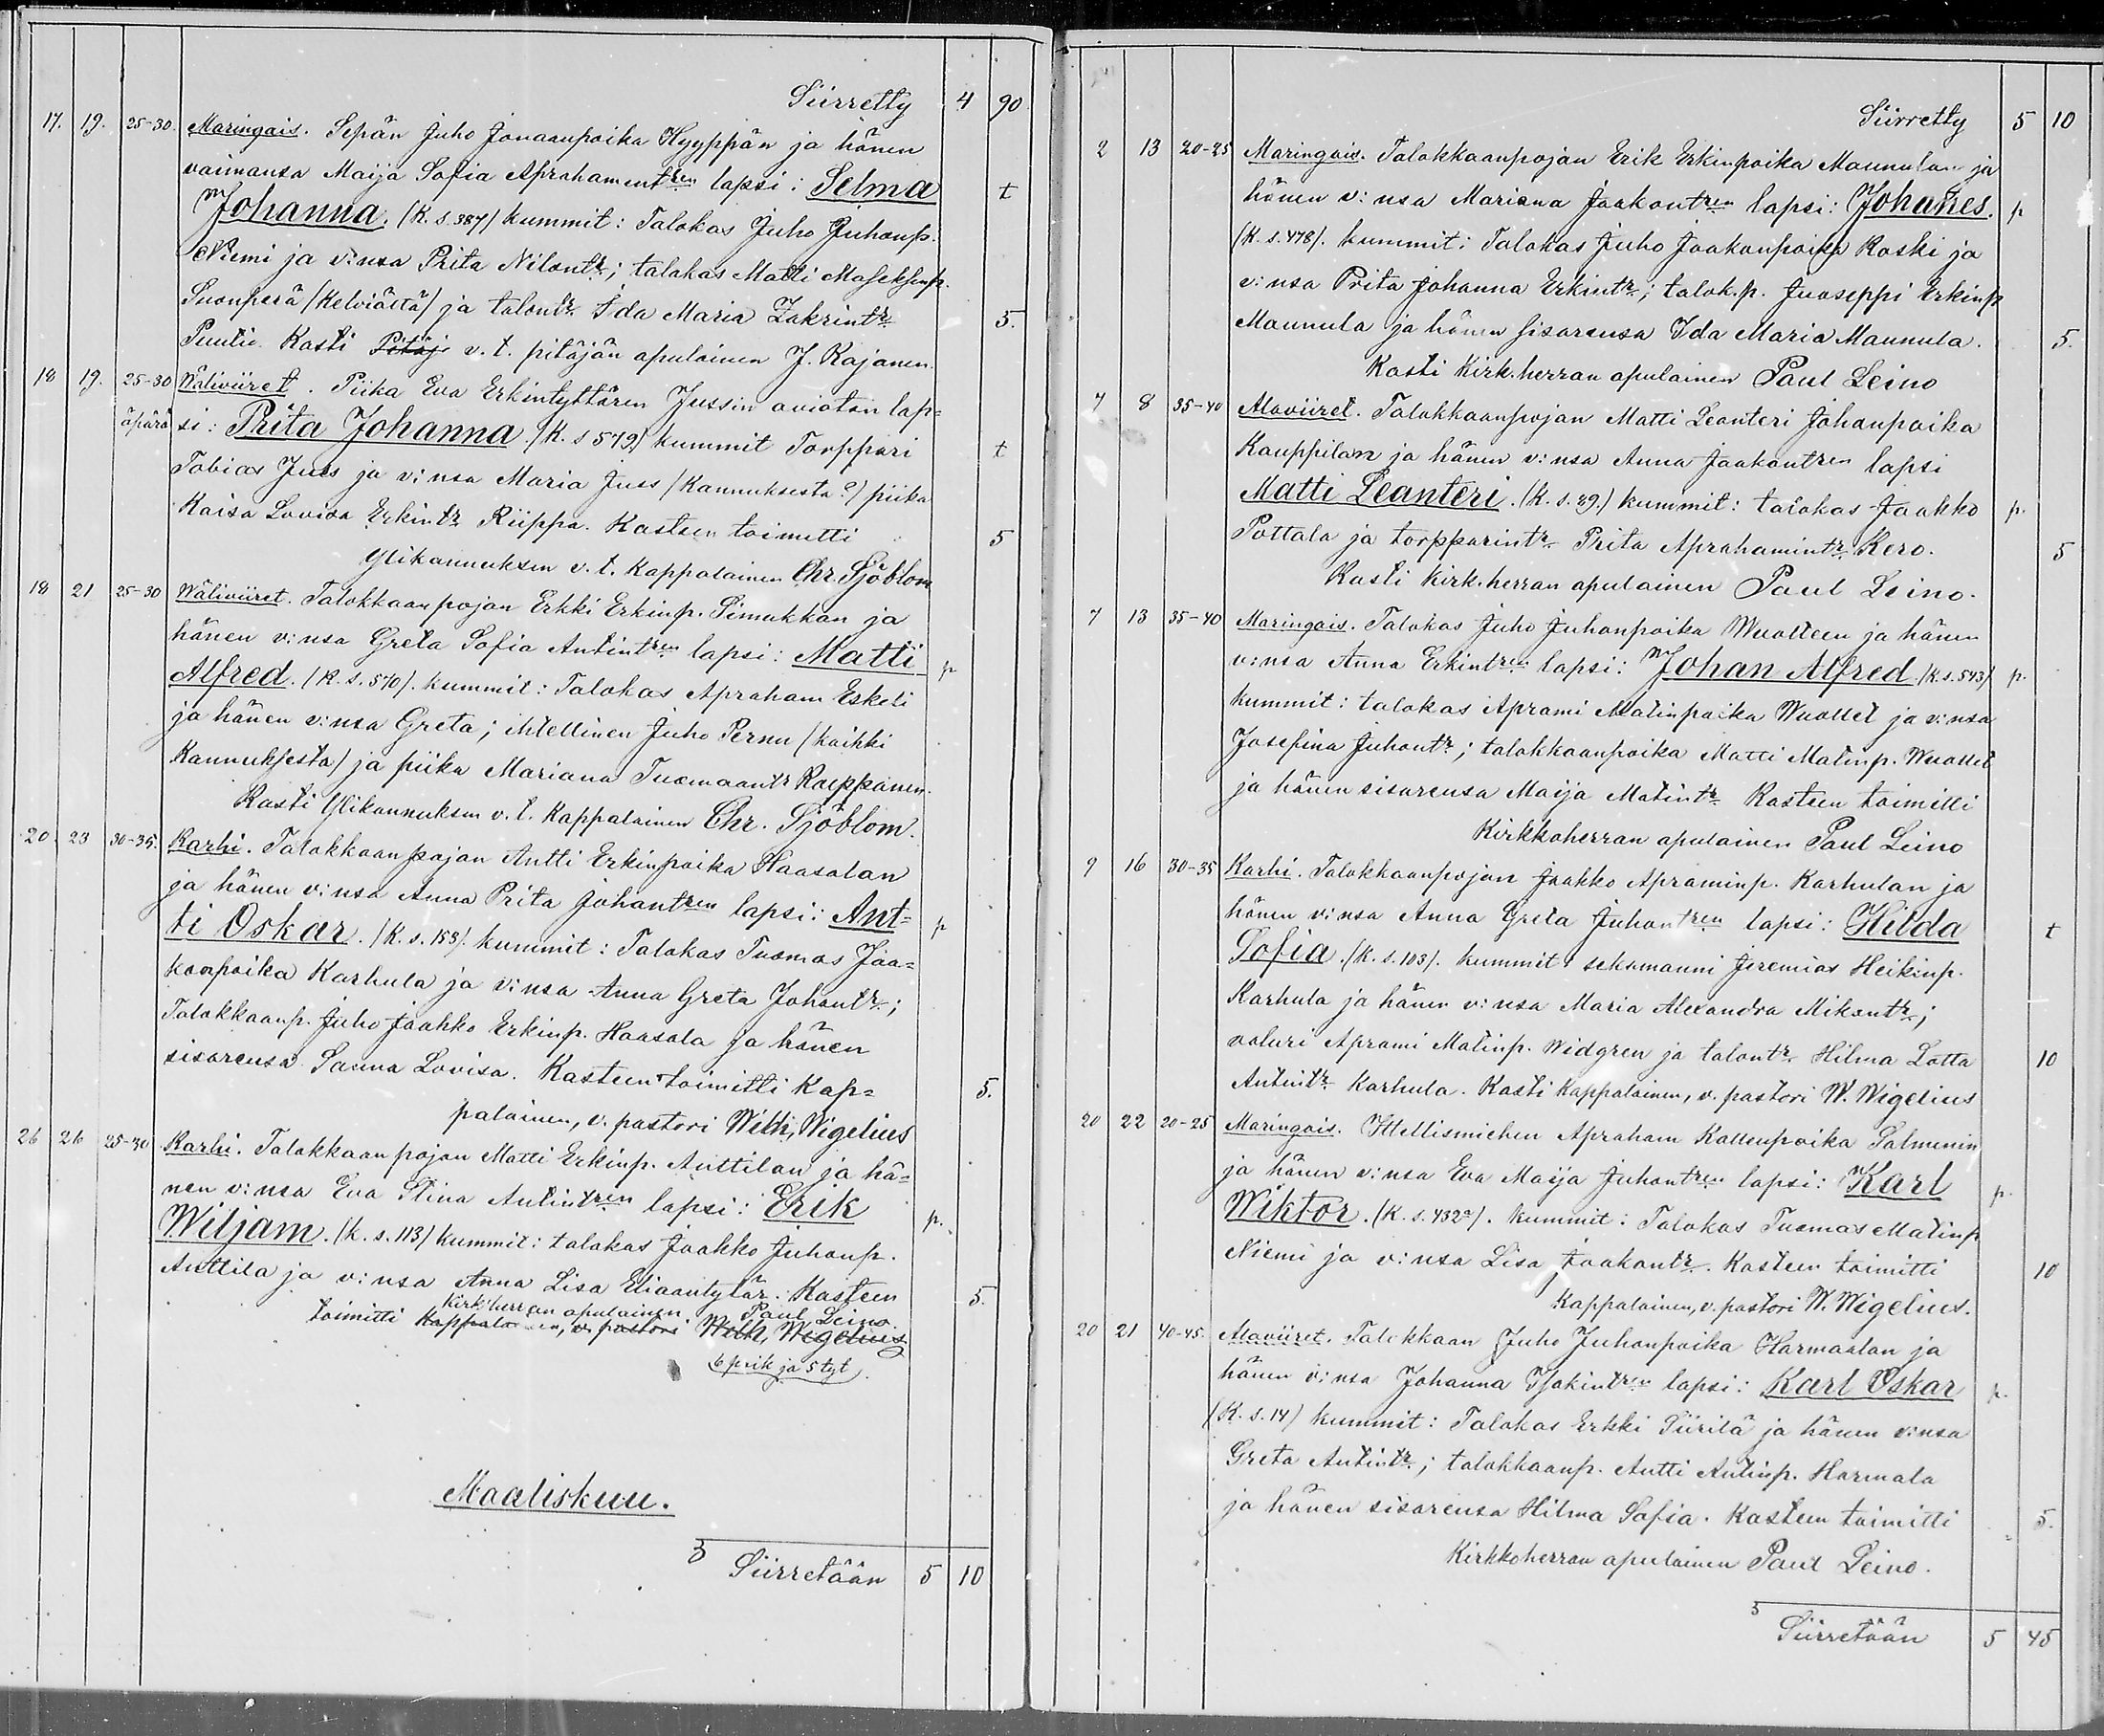 Siirretty 4 90
17. 19. 25-30. Maringais. Sepän Juho Jonaanpoika Hyyppän ja hänen
vaimansa Maija Sofia Aprahamentren lapsi: Selma t
Johanna. (K. s. 387) kummit: Talokas Juho Juhonp.
Niemi ja v:nsa Prita Nilontr.; talokas Matti
Suonperä (Kelviästä) ja talontr. Ida Maria Zakrintr. 5.
Puutio. Kasti Pitäj v. t. pitäjän apulainen J. Kajanen.
18 19. 25-30 Wäliviiret. Piika Eva Erkintyttären Jussin aviotan lap=
äpärä si: Prita Johanna. (K. s 579) kummit Torppari t
Tobias Juss ja v:nsa Maria Juss (Kannuksesta?) piika
Kaisa Lovisa Erkintr. Riippa. Kasteen toimitti 5
Ylikannuksen v. t. Kappalainen Chr. Sjöblom
18 21 25-30 Wäliviiret. Talokkaanpojan Erkki Erkinp. Simukkan ja
hänen v:nsa Greta Sofia Antintren lapsi: Matti p
Alfred. (K. s. 570). kummit: Talokas Apraham Eskeli
ja hänen v:nsa Greta; ihtellinen Juho Pernu (kaikki
Kannuksesta) ja piika Mariana Tuomaantr Roeppanen.
Kasti Ylikannuksen v. t. Kappalainen Chr. Sjöblom.
20 23 30-35. Karhi. Talokkaanpojan Antti Erkinpoika Haasalan
ja hänen v:nsa Anna Prita Johantren lapsi: Ant= p
ti Oskar. (K. s. 153). kummit: Talokas Tuomas Jaa=
konpoika Karhula ja v:nsa Anna Greta Johantr.;
Talokkaanp. Juho Jaakko Erkinp. Haasala ja hänen
sisarensa Sanna Lovisa. Kasteen toimitti Kap= 5.
palainen, v. pastori Wilh, Wigelius
26 26 25-30 Karhi. Talokkaanpojan Matti Erkinp. Anttilan ja hä=
nen v:nsa Eva Stina Antintren lapsi: Erik p.
Wiljam. (K. s. 113) kummit: talokas Jaakko Juhonp.
Anttila ja v:nsa Anna Lisa Eliaantytär. Kasteen 5.
Kirk'herran apulainen Paul Leino.
toimitti Kappalainen, v. pastori Wilh, Wigelius
6 poik ja 5 tyt.
Maaliskuu.
Siirretään 5 10
Siirretty 5 10
2 13 20-25 Maringais. Talokkaanpojan Erik Erkinpoika Maunulan ja
hänen v:nsa Mariana Jaakontren lapsi: Johanes. p
(K. s. 478). kummit: Talokas Juho Jaakonpoika Koski ja
v:nsa Prita Johanna Erkintr.; talok.p. Juoseppi Erkinp
Maunula ja hänen sisarensa Ida Maria Maunula. 5.
Kasti Kirk.herran apulainen Paul Leino
7 8 35-40 Alaviiret. Talokkaanpojan Matti Leanteri Johanpoika
Kauppilan ja hänen v:nsa Anna Jaakontren lapsi
Matti Leanteri. (K. s. 39.) kummit: talokas Jaakko p.
Pottala ja torpparintr. Prita Aprahamintr. Kero. 5
Kasti Kirk.herran apulainen Paul Leino.
7 13 35-40 Maringais. Talokas Juho Juhonpoika Wuolleen ja hänen
v:nsa Anna Erkintren lapsi: Johan Alfred. (K. s. 543) p.
kummit: talokas Aprami Matinpoika Wuollet ja v:nsa
Josefina Juhontr.; talokkaanpoika Matti Matinp. Wuollet
ja hänen sisarensa Maija Matintr. Kasteen toimitti
Kirkkoherran apulainen Paul Leino
9 16 30-35 Karhi. Talokkaanpojan Jaakko Apraminp. Karhulan ja
hänen v:nsa Anna Greta Juhontren lapsi: Hilda t
Sofia. (K. s. 103). kummit: seksmanni Jeremias Heikinp.
Karhula ja hänen v:nsa Maria Alexandra Mikontr.;
valuri Aprami Matinp. Widgren ja talontr. Hilma Lotta 10
Antintr. Karhula. Kasti Kappalainen, v. pastori W. Wigelius
20 22 20-25 Maringais. Ittellismiehen Apraham Kallenpoika Salmenin
ja hänen v:nsa Eva Maija Juhontren lapsi: Karl p.
Wiktor. (K. s. 432a). kummit: Talokas Tuomas Matinp
Niemi ja v:nsa Lisa Jaakontr. Kasteen toimitti 10
Kappalainen, v. pastori W. Wigelius.
20 21 40-45. Alaviiret. Talokkaan Juho Juhonpoika Harmaalan ja
hänen v:nsa Johanna Isakintren lapsi: Karl Oskar p.
(K. s. 14) kummit: Talokas Erkki Siirilä ja hänen v:nsa
Greta Antintr.; talokkaanp. Antti Antinp. Harmala
ja hänen sisarensa Hilma Sofia. Kasteen toimitti 5.
Kirkkoherran apulainen Paul Leino.
Siirretään 5 45